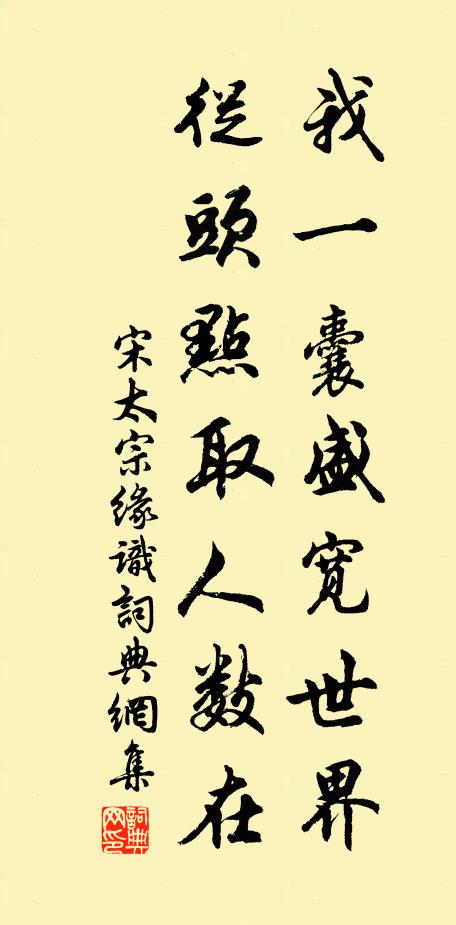 我一囊盛宽世界
從頭點取人数在
宋太宗缘識詞典網集
詞典网印